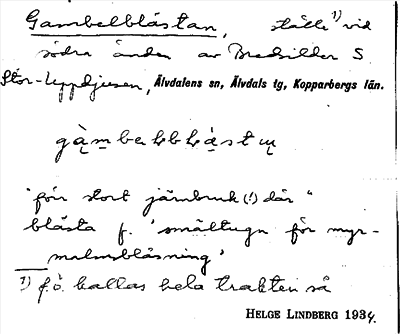 Gambelblästan, ställe ¹) vid
södra änden av Bredsilder S
Stor-Uppdjusen, Älvdalens sn, Älvdals tg, Kopparbergs län.
"förr stort järnbruk (!) där"
blästa f. 'smältugn för myr-
malmsblåsning'
¹) f.ö. kallas hela trakten så
HELGE LINDBERG 1934.